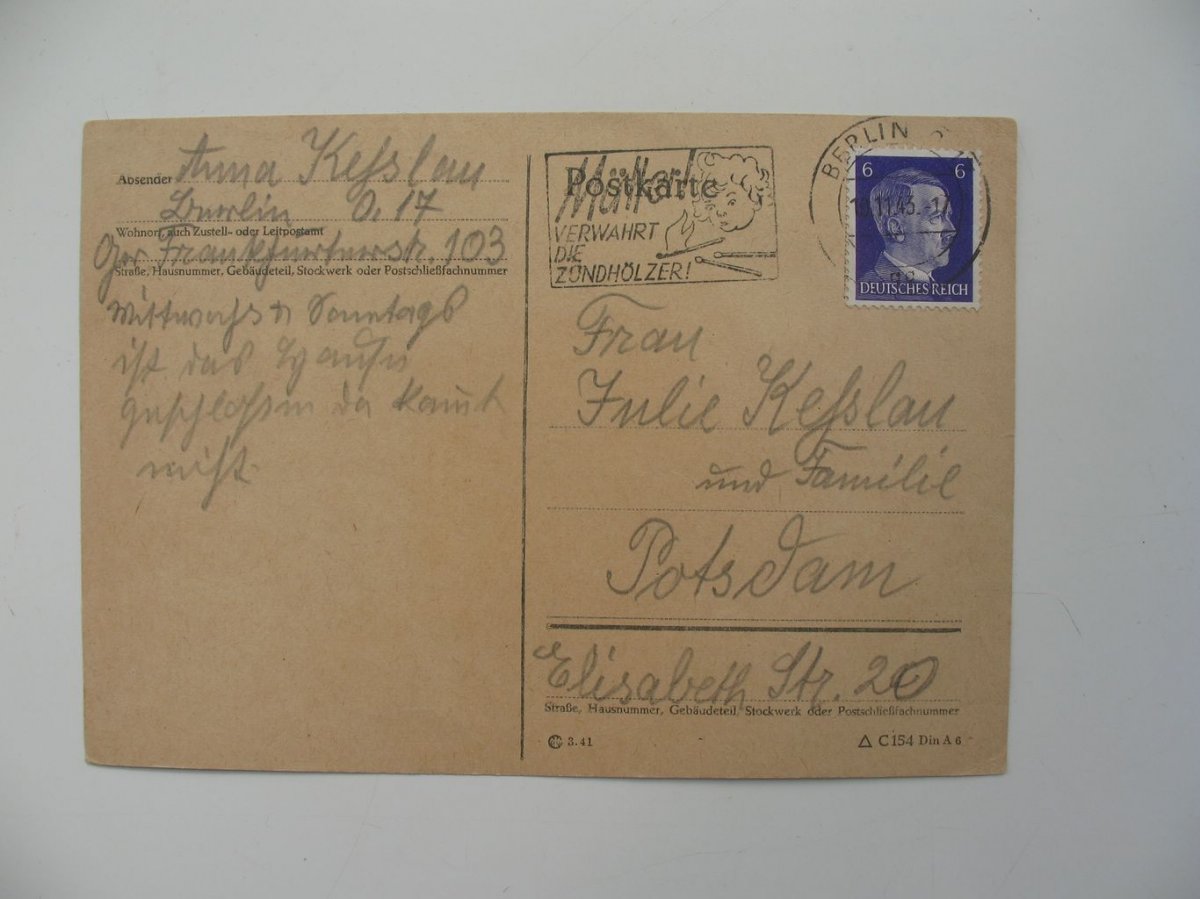 Absender Anna Kesslau
Berlin O. 17
Wohnort, auch Zustell- oder Leitpostamt
Gr. Frankfurterstr. 103
Straße, Hausnummer, Gebäudeteil, Stockwerk oder Postschließfachnummer
Mittwochs & Sonntags
ist das
geschlossen da
nicht.
Postkarte
Mütter!
VERWAHRT
DIE
ZÜNDHÖLZER!
BERLIN
11.43.
6 6
DEUTSCHES REICH
Frau
Julie Kesslau
und Familie
Potsdam
Elisabeth Str. 20
Straße, Hausnummer, Gebäudeteil, Stockwerk oder Postschließfachnummer
3.41
C 154 Din A 6